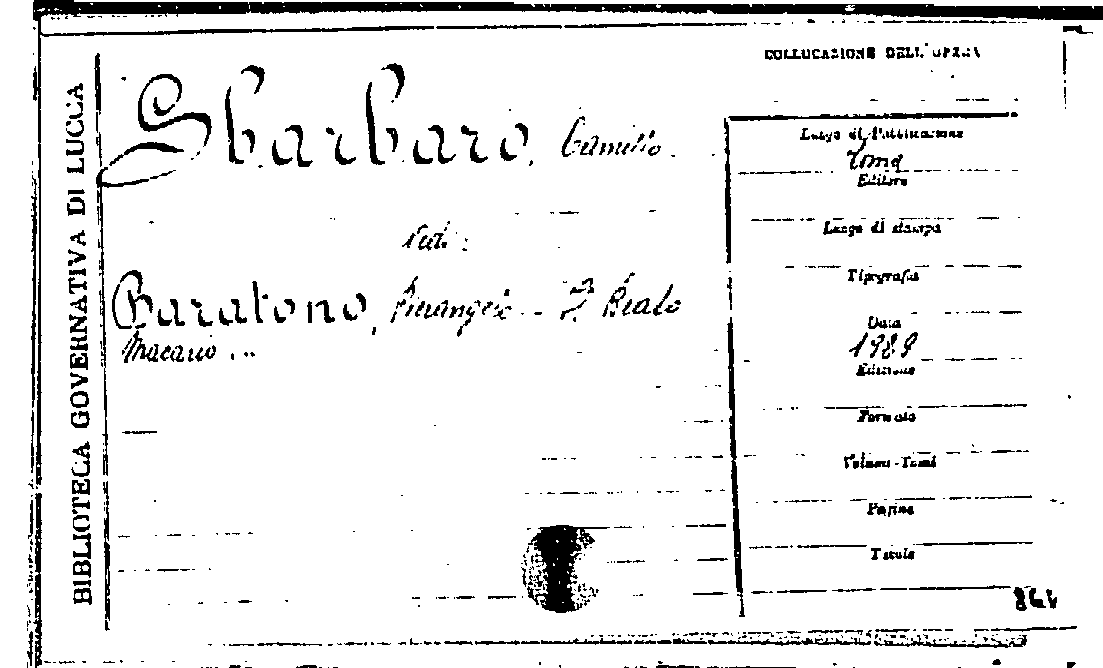 BIBLIOTECA GOVERNATIVA DI LUCCA
COLLOCAZIONE DELL'OPERA
Sbarbaro, Camillo.
Vedi:
Baratono, Pierangelo - Il Beato
Macario ...
Luogo di Pubblicazione
Roma
Editore
Luogo di stampa
Tipografia
Data
1989
Edizione
Formato
Volumi - Tomi
Pagine
Titolo